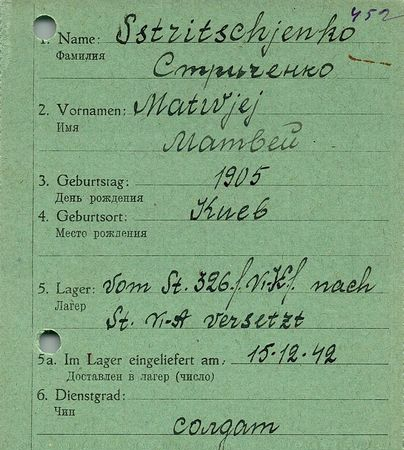 452
1. Name: Sstritschjenko
Фамилия
Стриченко
2. Vornamen: Matwjej
Имя
Матвей
3. Geburtstag: 1905
День рождения
4. Geburtsort: Киев
Место рождения
5. Lager: Vom St. 326/VI-K/ nach
Лагер
St. VI-A versetzt
5a. Im Lager eingeliefert am: 15-12-42
Доставлен в лагер (число)
6. Dienstgrad:
Чин
солдат